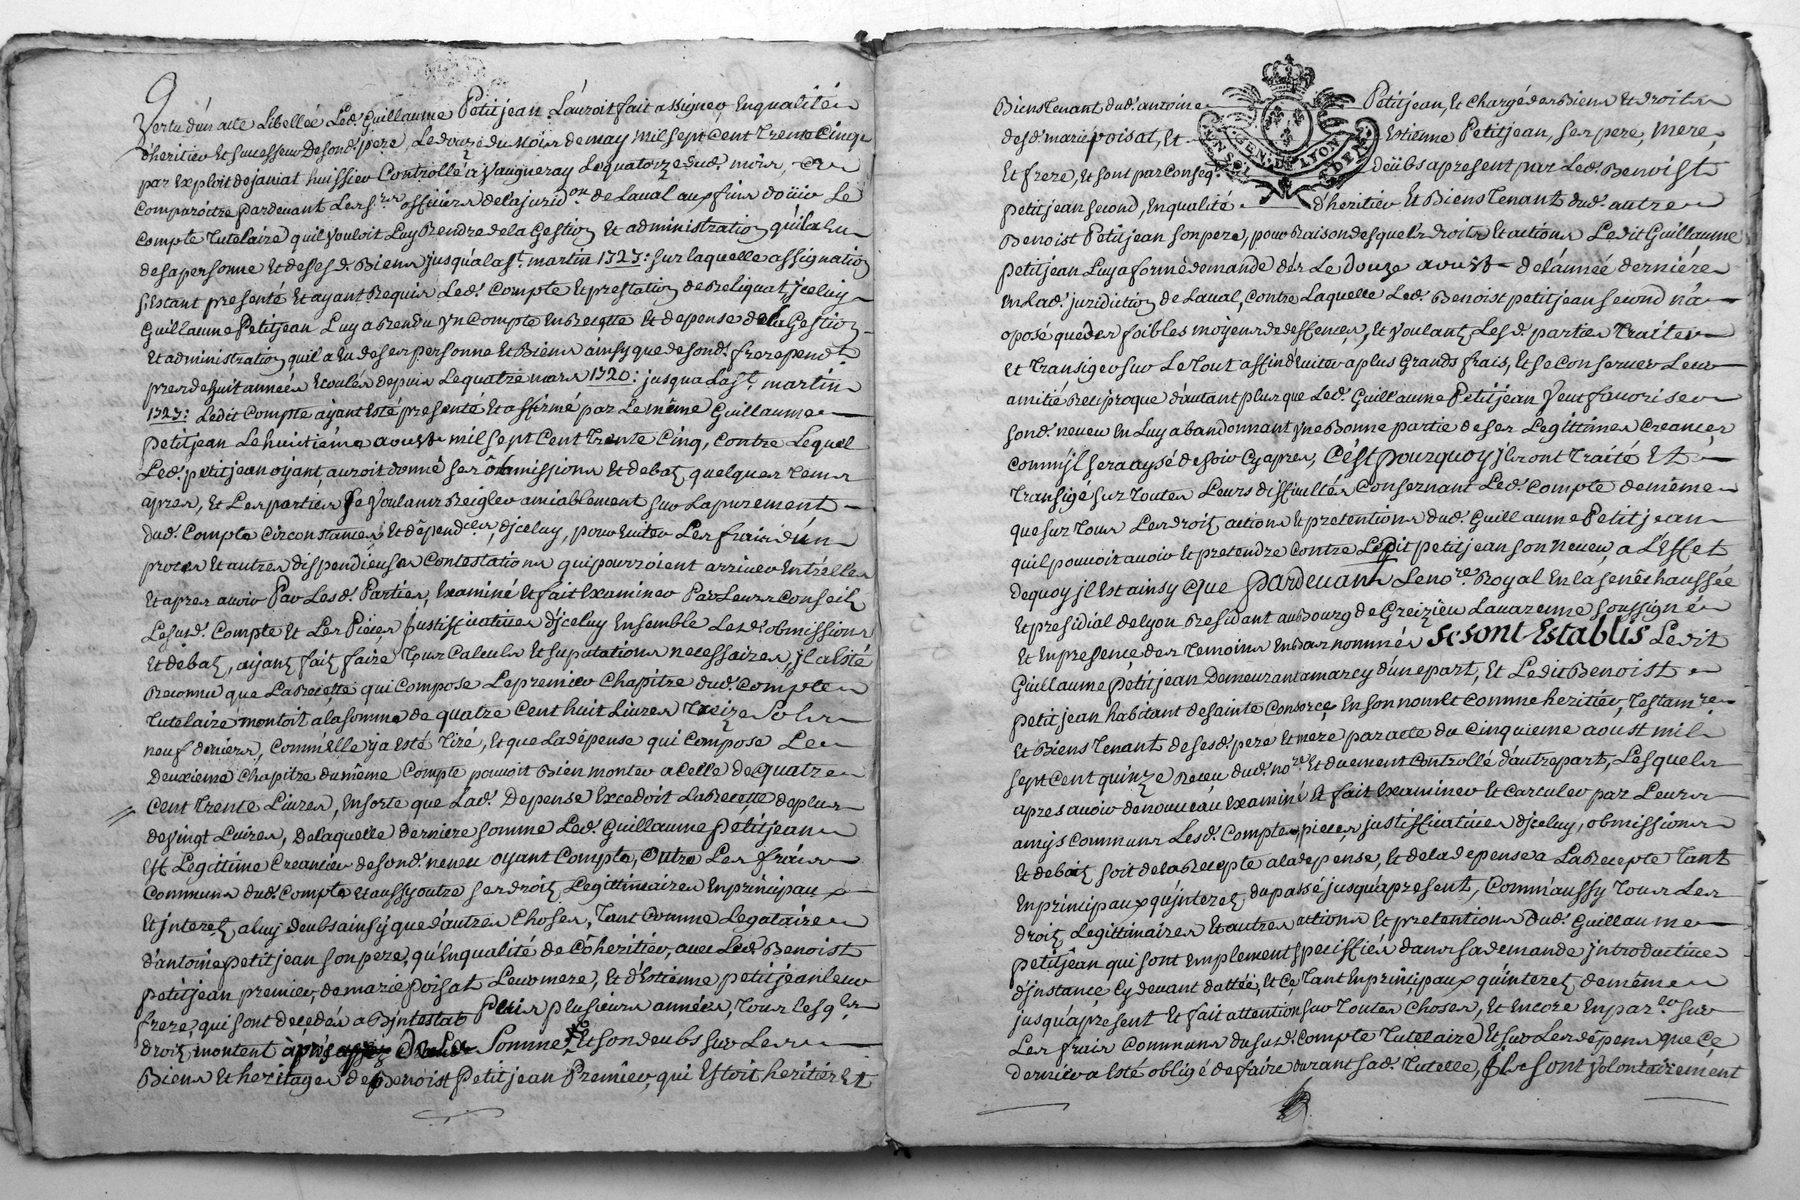 Vertu d'un acte Libellée Led. Guillaume Petitjean L'auroit fait assigner, En qualité
d'heritier Et successeur De son d. pere, Le douze du Mois de may Mil sept Cent Trente Cinq
par Exploit de janiat huissier Controllé a Vaugneray Le quatorze dud. mois,
Comparoitre pardevant Les srs. officiers de la juridon. de Laval aux fins d'ouir Le
Compte Tutelaire qu'il vouloit Luy Rendre de la Gestion Et administration qu'il a Eu
de sa personne Et de ses d. Biens jusqu'a la st. martin 1727: sur laquelle assignation
s'estant presenté Et ayant Requis Led. Compte Et prestation de Reliquat, jceluy
Guillaume Petitjean Luy a Rendu Un Compte En Recepte Et depense de la Gestion
Et administration qu'il a Eu de ses personne Et Biens ainsy que de son d. frere pendt.
pres de huit années Ecoulés depuis Le quatre mars 1720: jusqu'a La st. martin
1727: Ledit Compte ayant Esté presenté Et affirmé par Le même Guillaume
petitjean Le huitiéme aoust mil sept Cent Trente Cinq, Contre Lequel
Led. petitjean oyant auroit donné ses obmissions Et debatz quelques tems
apres, Et Les parties se Voulans Reigler amiablement sur L'apurement
dud. Compte Circonstances Et dépendces. d'jceluy, pour Eviter Les frais d'un
procés Et autres dispendieuses Contestations qui pourroient arriver Entr'elles
Et apres avoir Par Lesd. Parties, Examiné Et fait Examiner Par Leurs Conseilz
Le susd. Compte Et Les Pieces Justifficatives d'jceluy Ensemble Lesd. obmissions
Et debatz, ayant fait faire Tous Calculs Et suputations necessaires, jl a Esté
Reconnu que La Recepte qui Compose Le premier Chapitre dud. Compte
Tutelaire montoit a la somme de quatre Cent huit Livres Treize Sols
neuf deniers, Comm'Elle y a Esté Tiré, Et que La dépense qui Compose Le
deuxieme Chapitre du même Compte pouvoit Bien monter a Celle de quatre
Cent Trente Livres, En sorte que Lad. Depense Excedoit La Recette de plus
de vingt Livres, De laquelle derniere somme Led. Guillaume petitjean
Est Legitime Creancier de son d. neveu oyant Compte, Outre Les frais
Communs dud. Compte Et aussy outre ses droitz Legittimaires En principaux
Et jnteretz a luy deubs ainsy que d'autres Choses, Tant Comme Legataire
d'antoine petitjean son pere, qu'En qualité de Côheritier, avec Led. Benoist
petitjean premier, de marie Poisat Leur mere, Et d'Estienne petitjean leur
frere, qui sont decedés abjntestat Puis plusieurs années, Tous Lesqls.
droitz montent Somme Et son deubs sur Les
Biens Et heritages de Benoist Petitjean Premier, qui Estoit heritier Et
Biens Tenant dud. antoine Petitjean, Et Chargé des Biens Et droits
desd. marie poisat, Et Estienne Petitjean, ses pere, mere,
Et frere, Et sont par Conseqt. deübs a present par Led. Benoist
petitjean second, En qualité d'heritier Et Biens Tenant dud. autre
Benoist Petitjean son pere, pour Raison desquels droits Et actions Ledit Guillaume
petitjean Luy a formé demande dés Le douze aoust de l'année derniére
En Lad. juridiction de Laval, Contre Laquelle Led. Benoist petitjean second n'a
oposé que des foibles moyens de deffences, Et Voulant Lesd. parties Traiter
Et Transiger sur Le Tout affin d'Eviter a plus Grands frais, Et se Conserver Leur
amitié Reciproque d'autant plus que Led. Guillaume Petitjean Veut favoriser
son d. neveu En Luy abandonnant Une Bonne partie de ses Legittimes Creances
Comm'jl sera aysé de Voir Cy apres, C'ést pourquoy jls ont Traité Et
Transigé sur Toutes Leurs difficultés Consernant Led. Compte de même
que sur Tous Les droitz actions Et pretentions dud. Guillaume Petitjean
qu'il pouvoit avoir Et pretendre Contre Ledit petitjean son Neveu, a L'Effet
de quoy jl Est ainsy Que Pardevant Le nore. Royal En la senéchaussée
Et presidial de Lyon Residant au Bourg de Greizieu Lavarenne soussigné
Et En presence des Temoins En Bas nommés Se sont Establis Ledit
Guillaume Petitjean Demeurant a marcy d'une part, Et Ledit Benoist
petitjean habitant de sainte Consorce, En son nom Et Comme heritier, Testamre.
Et Biens Tenant de ses d. pere Et mere par acte du Cinquieme aoust mil
sept Cent quinze Receu dud. nore. Et duement Controllé d'autre part, Lesquels
apres avoir de nouveau Examiné Et fait Examiner Et Carculer par Leurs
amis Communs Lesd. Compte, pieces justifficatives d'jceluy, obmissions
Et debatz soit de la Recepte a la depense, Et de la depense a La Recepte Tant
En principaux qu'jnteretz du passé jusqu'a present, Comm'aussy Tous Les
droitz Legittimaires Et autres actions Et pretentions dud. Guillaume
petitjean qui sont Emplement speciffiés dans sa demande jntroductive
d'jnstance Cy devant dattée, Et Ce Tant En principaux qu'jnteretz de même
jusqu'a present Et fait attention sur Toutes Choses, Et Encore En parler. sur
Les frais Communs du sus d. Compte Tutelaire Et sur Les dépens que Ce
dernier a Esté obligé de faire durant sa d. Tutelle, Jls sont Volontairement
GEN. DE LYON